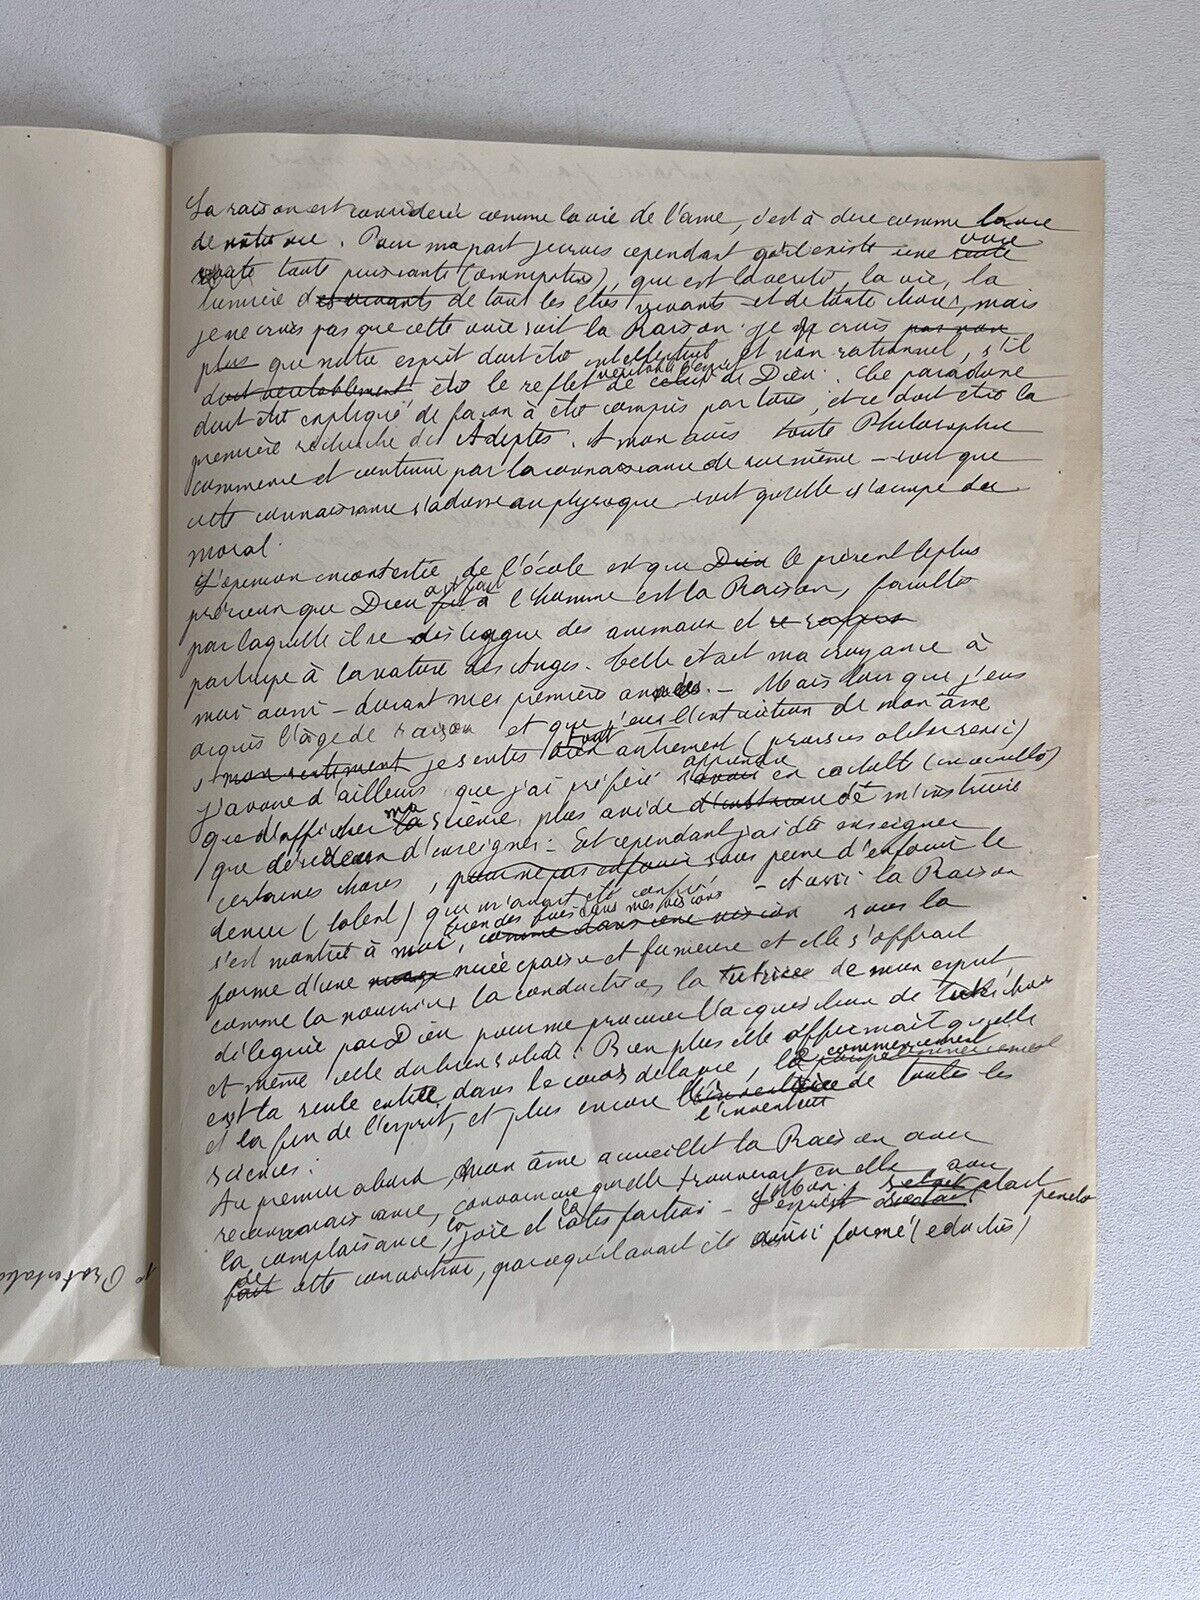 La raison est considerée comme la vie de l'ame, c'est à dire comme la vie
de notre vie. Pour ma part je crois cependant qu'il existe une route voie
route toute puissante (omnipotens), qui est la verité, la vie, la
lumière des vivants de tout les êtres vivants et de toute chose, mais
je ne crois pas que cette voie soit la Raison. Je crois pas non
plus que notre esprit doit être intellectuel et non rationnel, s'il
doit veritablement être le reflet de celui de Dieu. Ce paradoxe
doit être expliqué de façon à être compris par tous, et ce doit être la
première recherche des Adeptes. A mon avis toute Philosophie
commence et continue par la connaissance de soi même – soit que
cette connaissance s'adresse au physique soit qu'elle s'occupe du
moral.
L'opinion incontestée de l'école est que Dieu le présent le plus
précieux que Dieu fit ait fait à l'homme est la Raison, faculté
par laquelle il se distingue des animaux et
participe à la nature des Anges. Telle était ma croyance à
moi aussi – durant mes premières années. – Mais lors que j'eus
acquis l'âge de raison et que j'eus l'intuition de mon âme
, mon sentiment je sentis bien tout autrement (prorsus aliter sensi)
j'avoue d'ailleurs que j'ai préféré savoir apprendre en cachette
que d'afficher la ma science, plus avide d'instruire de m'instruire
que désireux d'enseigner. – Et cependant j'ai dû enseigner
certaines choses, pour ne pas enfouir sous peine d'enfouir le
denier (talent) qui m'avait été confié – Aussi la Raison
s'est montrée à moi, bien des fois dans mes visions comme dans une vision sous la
forme d'une nuage nuée épaisse et fumeuse et elle s'offrait
comme la nourrice, la conductrice, la tutrice de mon esprit,
déléguée par Dieu pour me procurer l'acquisition de
et même celle du bien solide. Bien plus elle affirmait qu'elle
est la seule entité, dans le cours de la vie, le commencement
et la fin de l'esprit, et plus encore l'inventeur de toutes les
sciences.
Au premier abord, mon âme accueillit la Raison avec
reconnaissance, convaincue qu'elle trouverait en elle
la complaisance, la joie et la satisfaction – l'esprit était
fait de cette conviction, parce qu'il avait été ainsi formé (eductus)